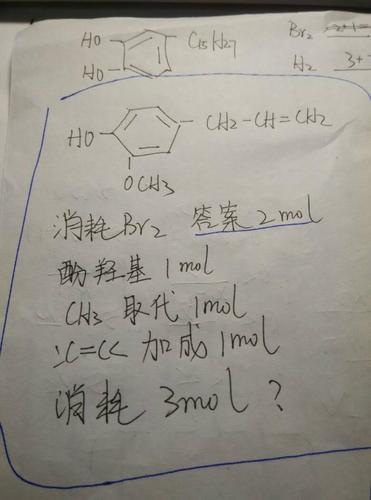 HO C15H27
HO
Br2 2+1=
H2 3+
HO CH2-CH=CH2
OCH3
消耗Br2 答案2mol
酚羟基1mol
CH3 取代1mol
C=C 加成1mol
消耗 3mol?